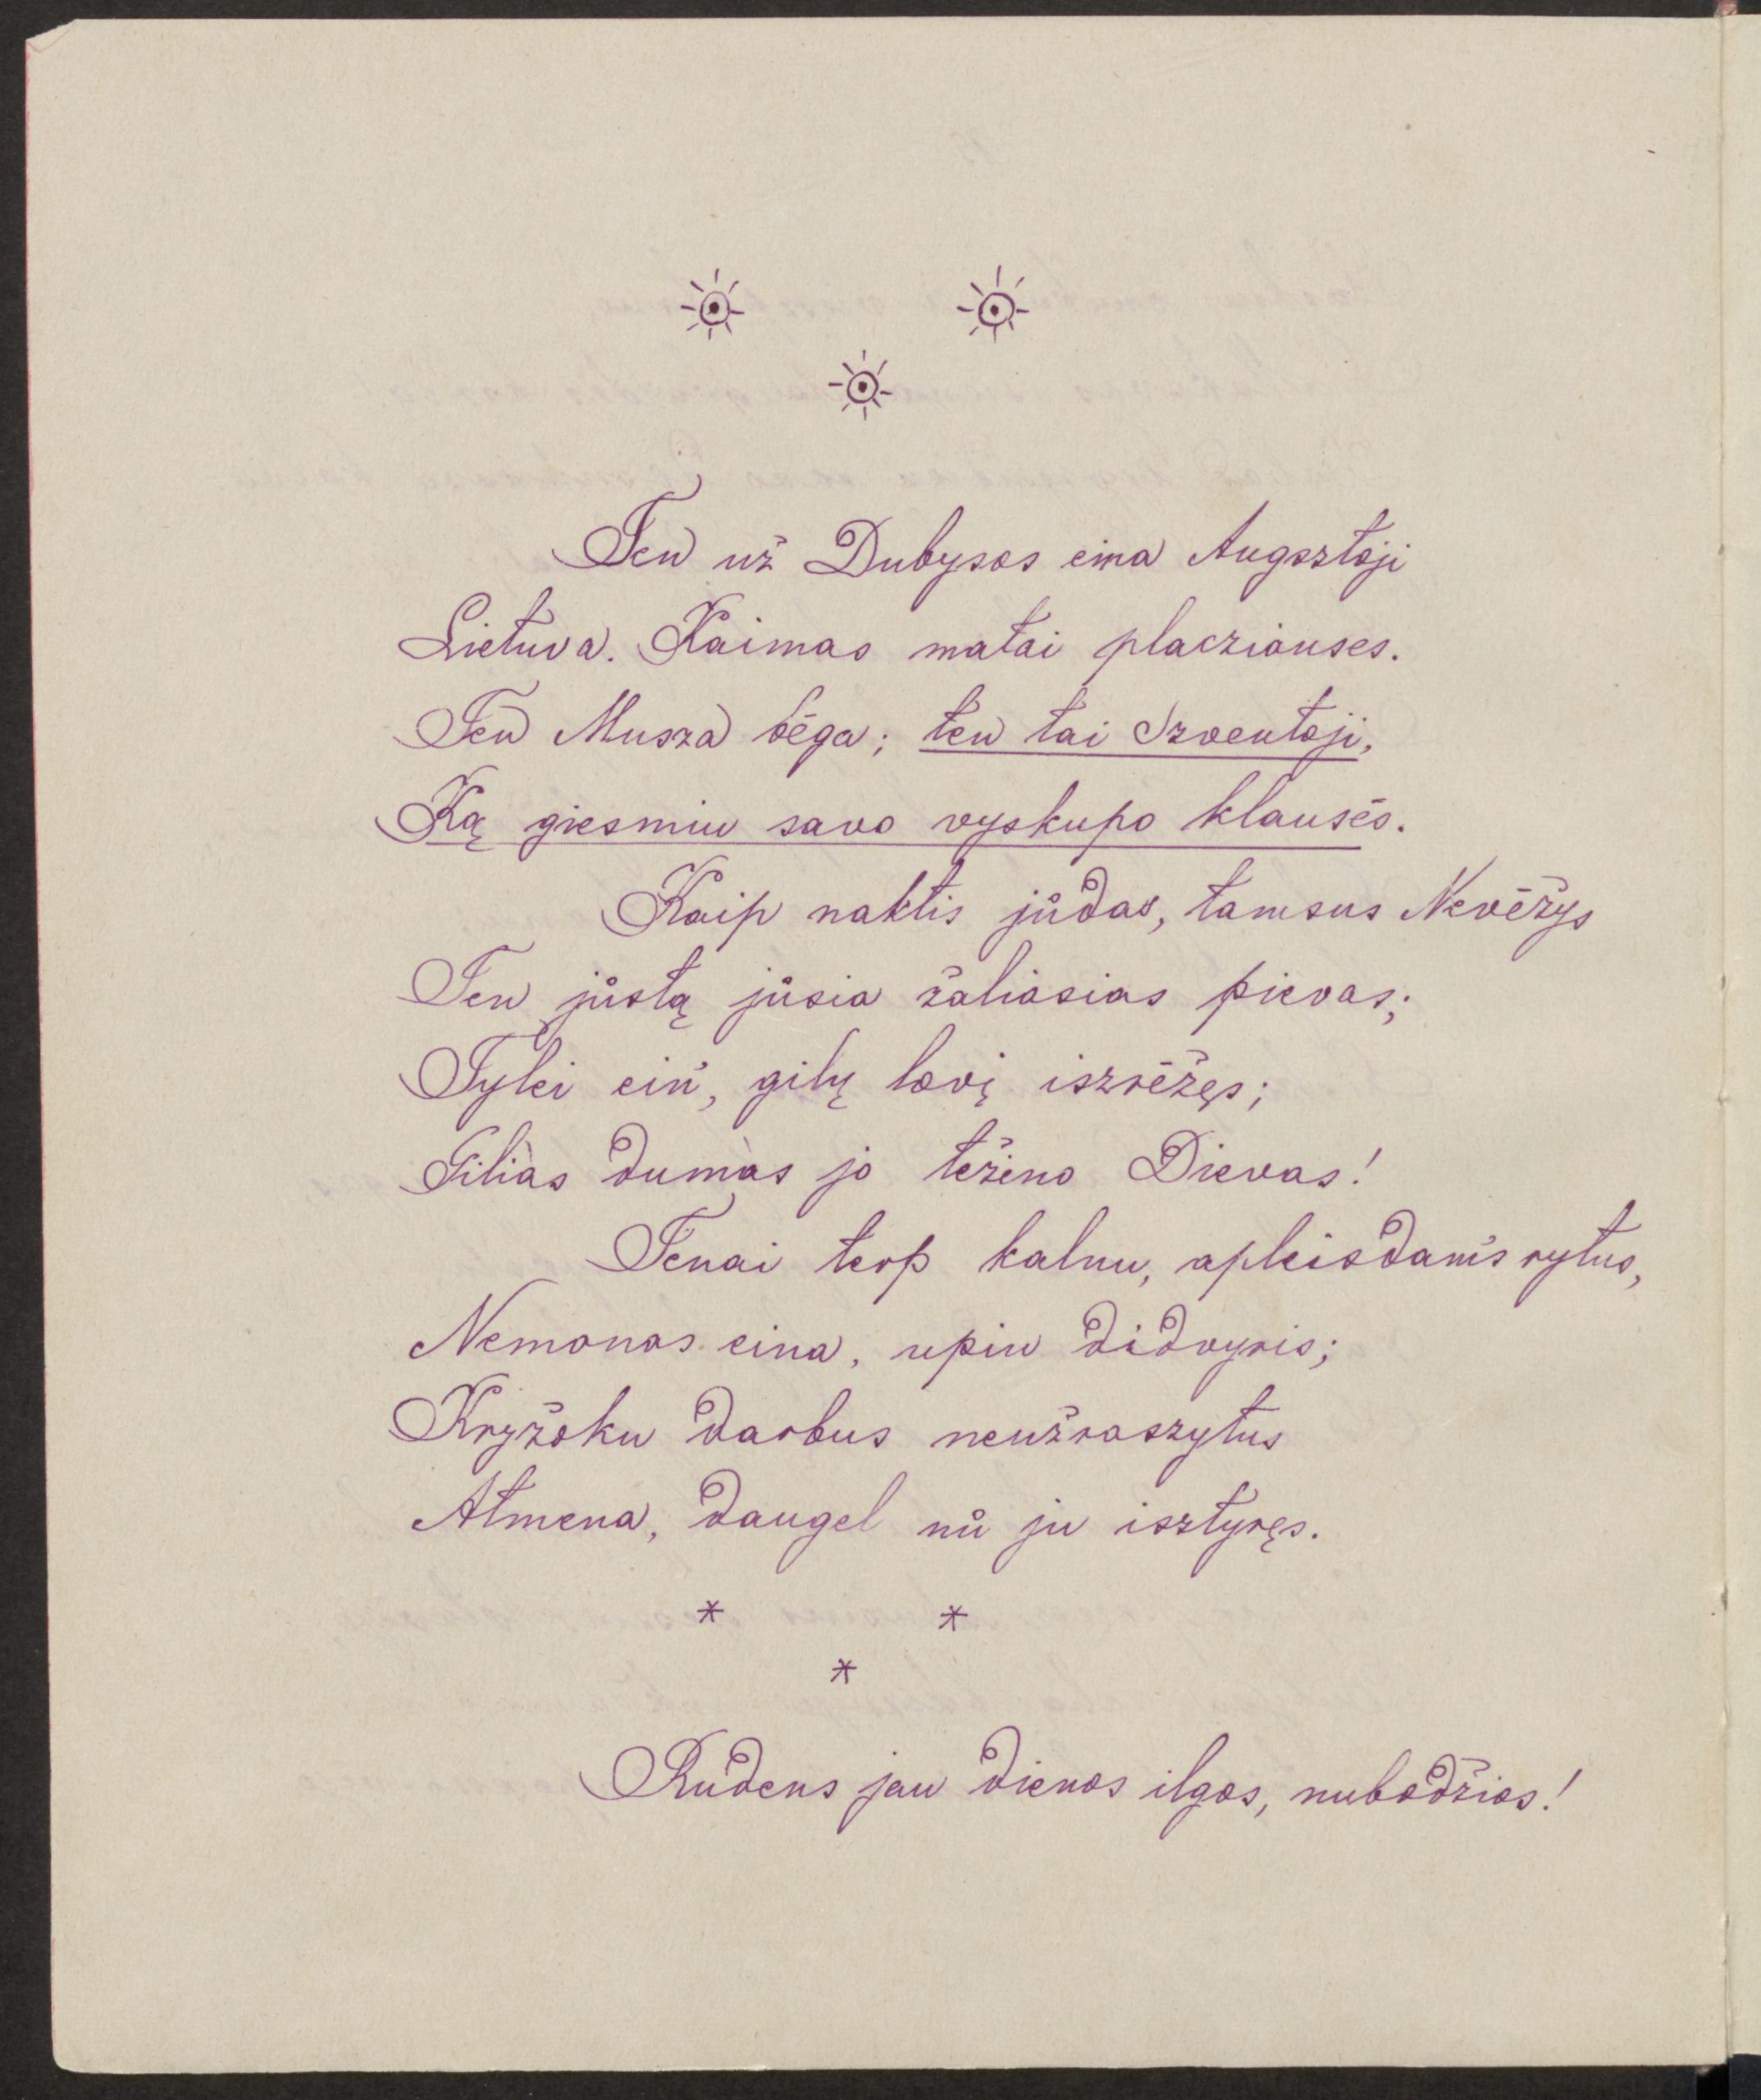 Ten už Dubysos eina Augsztoji
Lietuva. Kaimas matai placziauses.
Ten Musza bėga; ten tai Szventoji,
Ką giesmiu savo vyskupo klausės.
Kaip naktis jůdas, tamsus Nevėžys
Ten jůstą jůsia žaliasias pievas;
Tylei ein', gilų lovį iszrėžęs;
Gilias dumas jo težino Dievas!
Tenai terp kalnu, apleisdam's rytus,
Nemonas eina, upiu didvyris;
Kryžoku darbus neužraszytus
Atmena, daugel nů ju isztyręs.
* *
*
Rudens jau dienos ilgos, nubodžios!